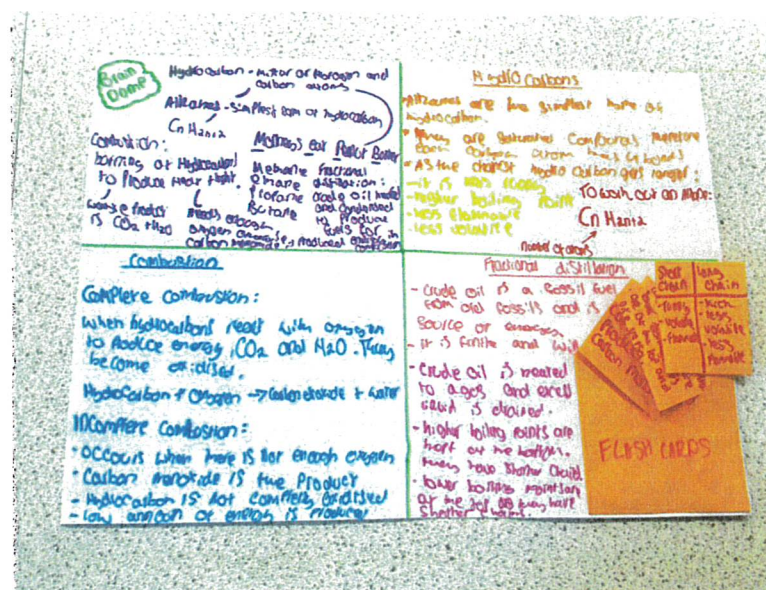 Brain
Dome
Hydrocarbon - of and
carbon atoms
Alkanes - simplest form of hydrocarbon
CnH2n+2
Mothers eat Peanut Butter
Combustion:
burning of Hydrocarbons
to Produce Heat + light.
waste product
is CO2 + H2O
needs oxygen
Methane
Ethane
Propane
Butane
Fractional
distillation:
crude oil heated
and condensed
to produce
fuels for
Hydrocarbons
- Alkanes are the simplest form of
hydrocarbon.
• They are saturated therefore
each carbon atom has 4 bonds
• As the hydrocarbon gets longer:
- it is less runny
- higher boiling point
- less flammable
- less volatile
To work out an alkane:
CnH2n+2
number of atoms
Combustion
Complete Combustion:
When hydrocarbons react with oxygen
to produce energy, CO2 and H2O. They
become oxidised.
Hydrocarbon + Oxygen → Carbon dioxide + water
Incomplete Combustion:
• occours when there is not enough oxygen
- Carbon monoxide is the product
- Hydrocarbon is not completely oxidised
- low amount of energy is produced
Fractional distillation
- crude oil is a fossil fuel
from old fossils and is
source of
- it is finite and will
- Crude oil is heated
to and
liquid is drained.
- higher boiling points are
at the bottom.
they have
• lower boiling
at the top as they have
shorter chains.
short
chain
long
chain
- runny
- thick
- less
volatile
- less
flammable
FLASH CARDS